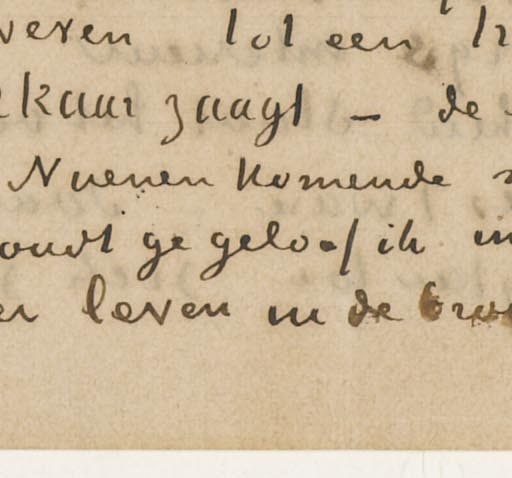 weven tot een
elkaar zaagt – de
Nuenen komende
oudt ge geloof ik in
er leven in de brou